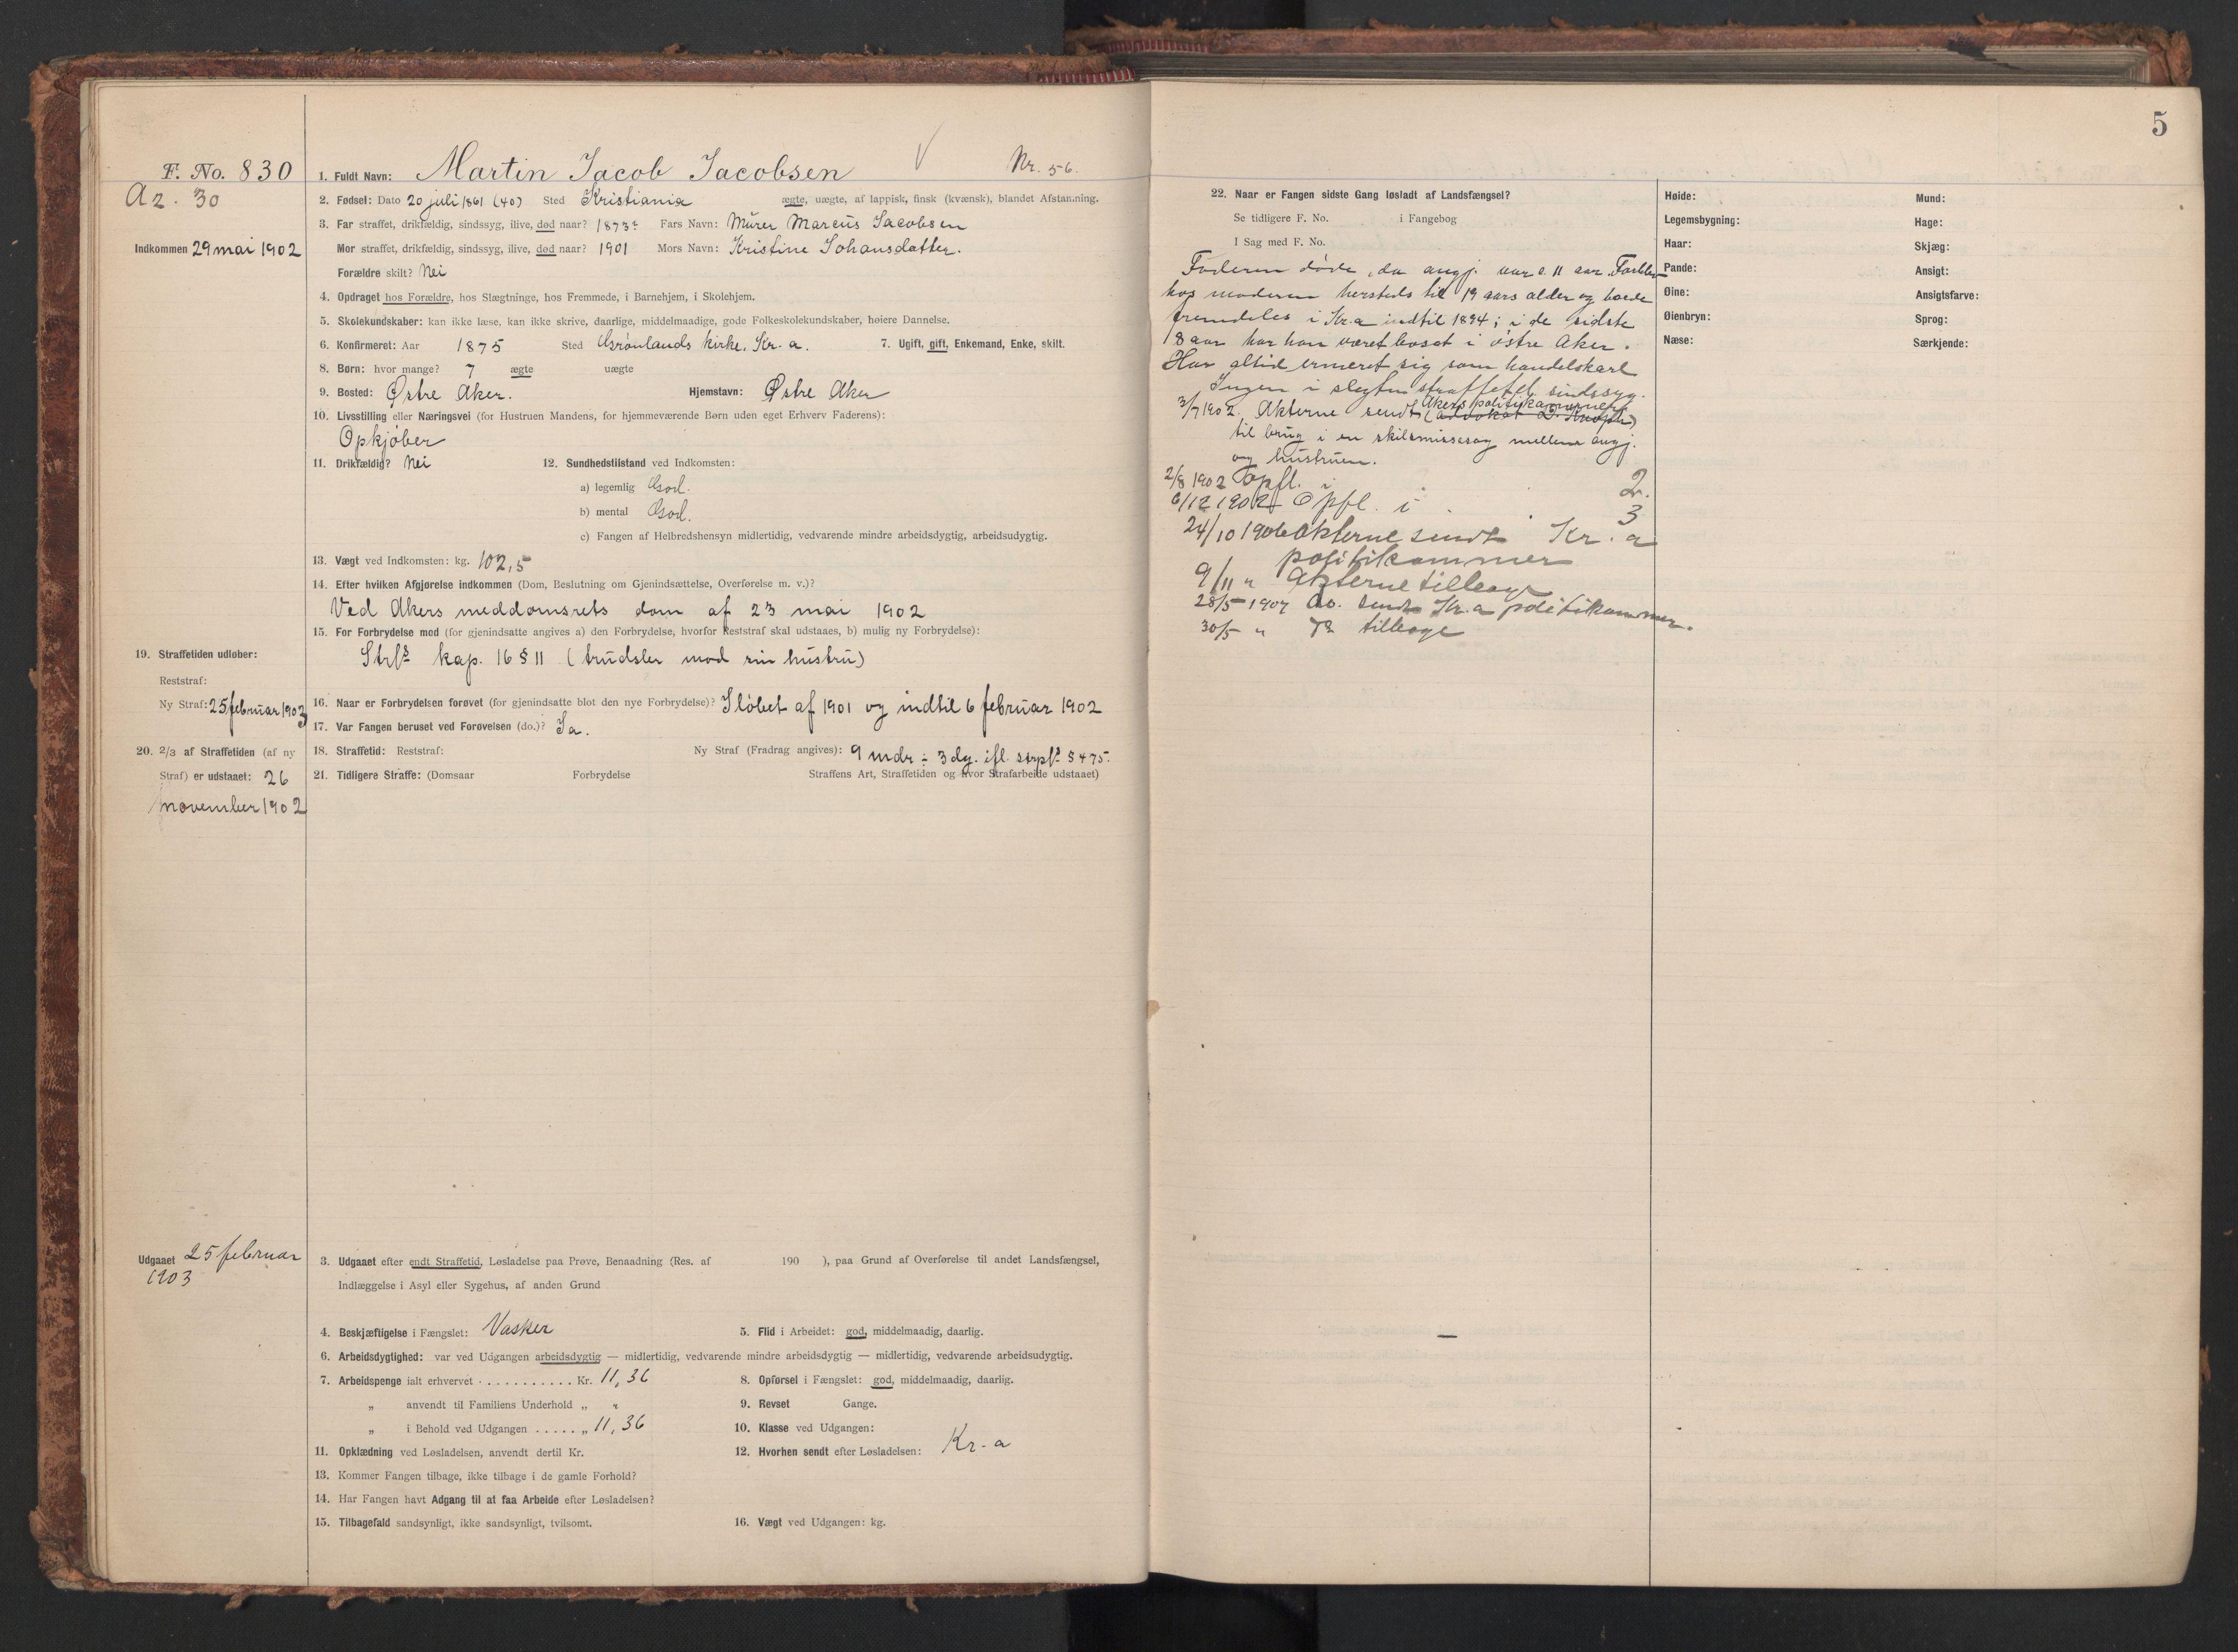 F. No. 830
Az. 30
Indkommen 29 mai 1902
1. Fuldt Navn: Martin Jacob Jacobsen V Nr. 56.
2. Fødsel: Dato 20 juli 1861 (40) Sted Kristiania ægte, uægte, af lappisk, finsk (kvænsk), blandet Afstamning.
3. Far straffet, drikfældig, sindssyg, ilive, død naar? 1873 Fars Navn: Murer Marcus Jacobsen
Mor straffet, drikfældig, sindssyg, ilive, død naar? 1901 Mors Navn: Kristine Johansdatter.
Forældre skilt? Nei
4. Opdraget hos Forældre, hos Slægtninge, hos Fremmede, i Barnehjem, i Skolehjem.
5. Skolekundskaber: kan ikke læse, kan ikke skrive, daarlige, middelmaadige, gode Folkeskolekundskaber, høiere Dannelse.
6. Konfirmeret: Aar 1875 Sted Grønlands kirke, Kr.a. 7. Ugift, gift, Enkemand, Enke, skilt.
8. Børn: hvor mange? 7 ægte uægte
9. Bosted: Østre Aker. Hjemstavn: Østre Aker
10. Livsstilling eller Næringsvei (for Hustruen Mandens, for hjemmeværende Børn uden eget Erhverv Faderens):
Opkjøber
11. Drikfældig? Nei 12. Sundhedstilstand ved Indkomsten:
a) legemlig God.
b) mental God.
c) Fangen af Helbredshensyn midlertidig, vedvarende mindre arbeidsdygtig, arbeidsudygtig.
13. Vægt ved Indkomsten: kg. 102,5
14. Efter hvilken Afgjørelse indkommen (Dom, Beslutning om Gjenindsættelse, Overførelse m. v.)?
Ved Akers meddomsrets dom af 23 mai 1902
15. For Forbrydelse mod (for gjenindsatte angives a) den Forbrydelse, hvorfor Reststraf skal udstaaes, b) mulig ny Forbrydelse):
Strfs kap. 16 § 11 (trudsler mod sin hustru)
19. Straffetiden udløber:
Reststraf:
Ny Straf: 25 februar 1903
16. Naar er Forbrydelsen forøvet (for gjenindsatte blot den nye Forbrydelse)? I løbet af 1901 og indtil 6 februar 1902
17. Var Fangen beruset ved Forøvelsen (do.)? Ja.
20. 2/3 af Straffetiden (af ny
Straf) er udstaaet: 26
november 1902
18. Straffetid: Reststraf: Ny Straf (Fradrag angives): 9 mdr ÷ 3 dg. ifl. strpfl § 475.
21. Tidligere Straffe: (Domsaar Forbrydelse Straffens Art, Straffetiden og hvor Strafarbeide udstaaet)
Udgaaet 25 februar
1903
3. Udgaaet efter endt Straffetid, Løsladelse paa Prøve, Benaadning (Res. af 190 ), paa Grund af Overførelse til andet Landsfængsel,
Indlæggelse i Asyl eller Sygehus, af anden Grund
4. Beskjæftigelse i Fængslet: Vasker 5. Flid i Arbeidet: god, middelmaadig, daarlig.
6. Arbeidsdygtighed: var ved Udgangen arbeidsdygtig — midlertidig, vedvarende mindre arbeidsdygtig — midlertidig, vedvarende arbeidsudygtig.
7. Arbeidspenge ialt erhvervet . . . . . . . . . . . Kr. 11,36 8. Opførsel i Fængslet: god, middelmaadig, daarlig.
„ anvendt til Familiens Underhold „ „ 9. Revset Gange.
„ i Behold ved Udgangen . . . . . „ 11,36 10. Klasse ved Udgangen:
11. Opklædning ved Løsladelsen, anvendt dertil Kr. 12. Hvorhen sendt efter Løsladelsen: Kr-a
13. Kommer Fangen tilbage, ikke tilbage i de gamle Forhold?
14. Har Fangen havt Adgang til at faa Arbeide efter Løsladelsen?
15. Tilbagefald sandsynligt, ikke sandsynligt, tvilsomt. 16. Vægt ved Udgangen: kg.
5
22. Naar er Fangen sidste Gang løsladt af Landsfængsel?
Se tidligere F. No. i Fangebog
I Sag med F. No.
Faderen døde, da angj. var c. 11 aar. Forblev
hos moderen hersteds til 19 aars alder og boede
fremdeles i Kr.a indtil 1894; i de sidste
8 aar har han været bosat i østre Aker.
Har altid ernæret sig som handelskarl
Ingen i slegten straffet el. sindssyg.
3/7 1902. Akterne sendt Akers politikammer (advokat)
til brug i en skilsmissesag mellem angj.
og hustruen.
2/8 1902 Opfl. i 2.
6/12 1902 Opfl. i 3
24/10 1906 Akterne sendt Kr.a
politikammer
9/11 „ Akterne tilbage
28/5 1907 do. sendt Kr.a politikammer.
30/5 „ tilbage
Høide: Mund:
Legemsbygning: Hage:
Haar: Skjæg:
Pande: Ansigt:
Øine: Ansigtsfarve:
Øienbryn: Sprog:
Næse: Særkjende: